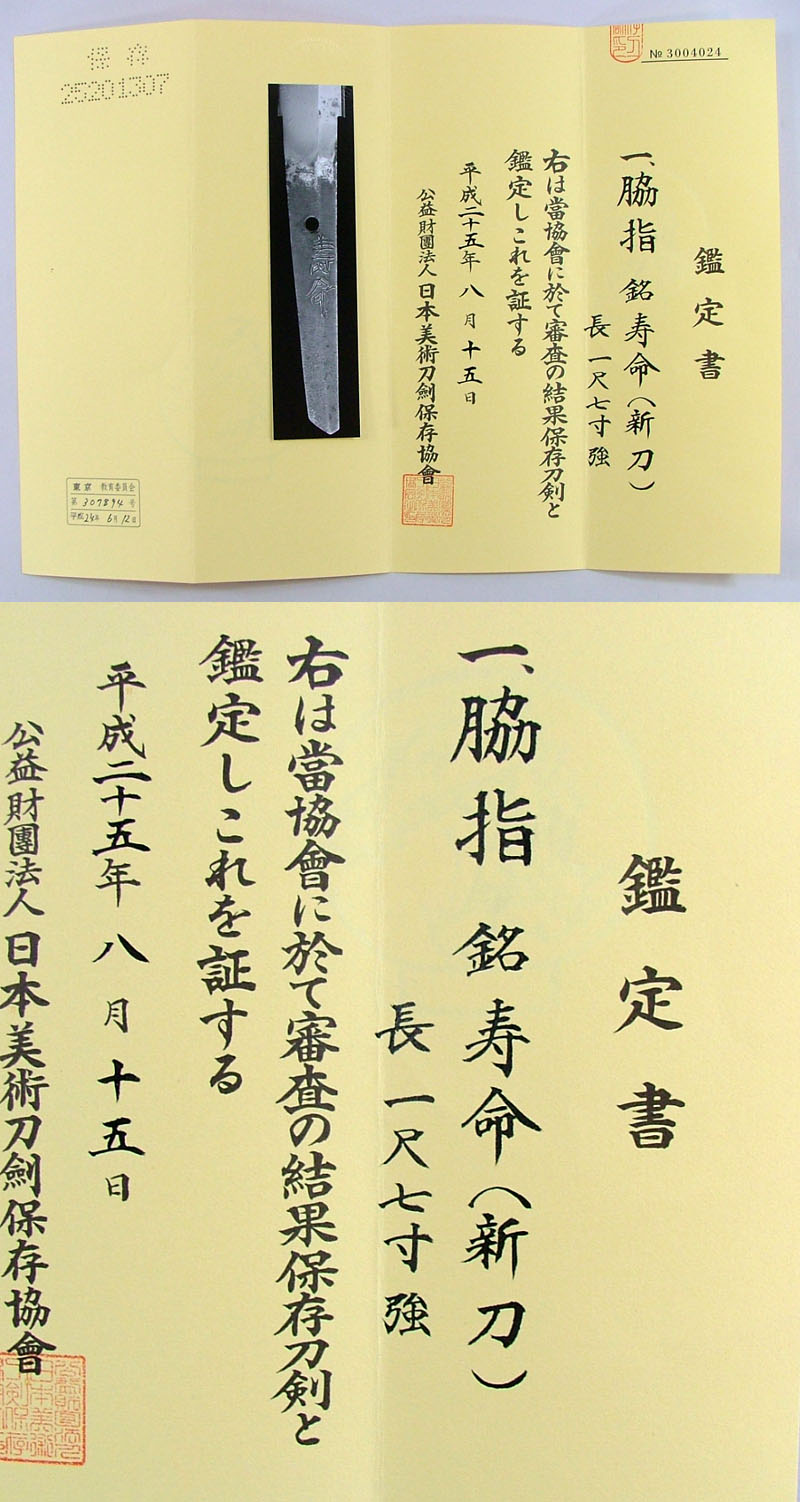 № 3004024
鑑定書
一、脇指 銘 寿命(新刀)
長 一尺七寸強
右は當協會に於て審査の結果保存刀剣と
鑑定しこれを証する
平成二十五年 八月 十五日
公益財團法人 日本美術刀劍保存協會
寿命
保存
25201307
東京 教育委員会
第 307894 号
平成24年 6月 12日
鑑定書
一、脇指 銘 寿命(新刀)
長 一尺七寸強
右は當協會に於て審査の結果保存刀剣と
鑑定しこれを証する
平成二十五年 八月 十五日
公益財團法人 日本美術刀劍保存協會